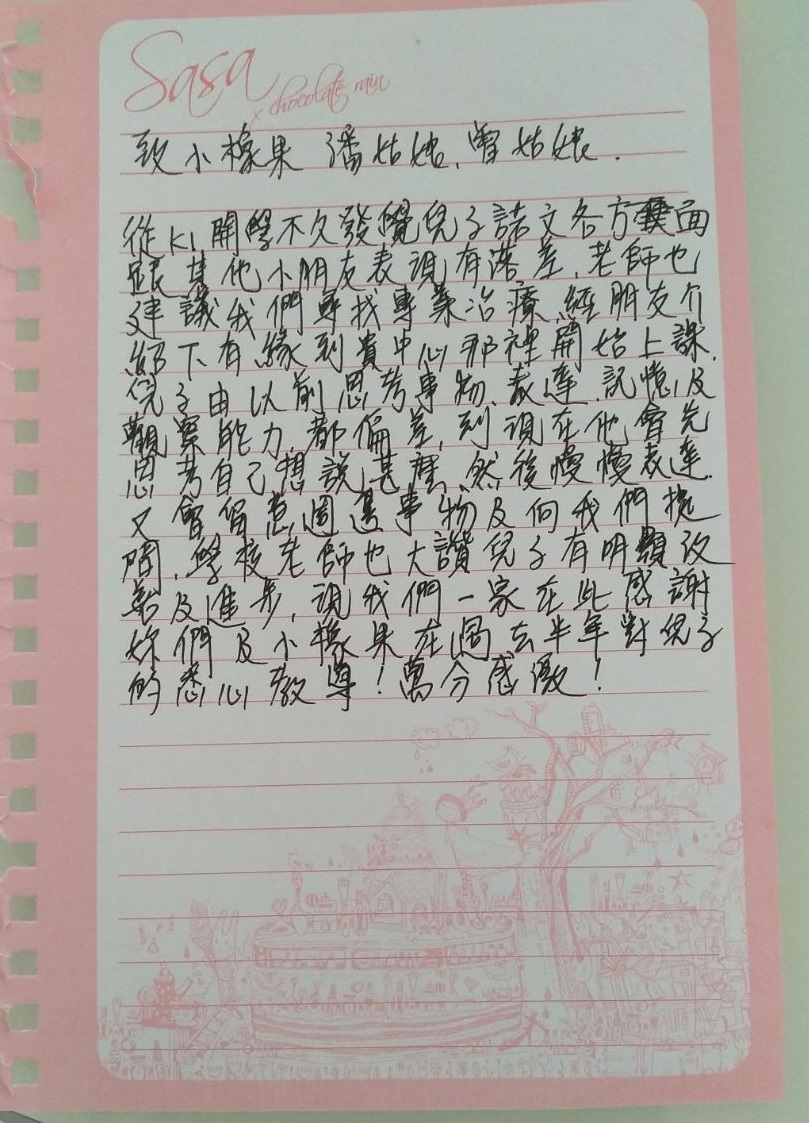 Sasa
x chocolate rain
致小橡果 潘姑娘、曾姑娘.
從K1開學不久發覺兒子語文各方面
跟其他小朋友表現有落差,老師也
建議我們尋找專業治療,經朋友介
紹下有緣到貴中心那裡開始上課.
兒子由以前思考事物、表達、記憶及
觀察能力,都偏差,到現在他會先
思考自己想說甚麼,然後慢慢表達.
又會留意週邊事物及向我們提
問,學校老師也大讚兒子有明顯改
善及進步,現我們一家在此感謝
妳們及小橡果在過去半年對兒子
的悉心教導!萬分感激!